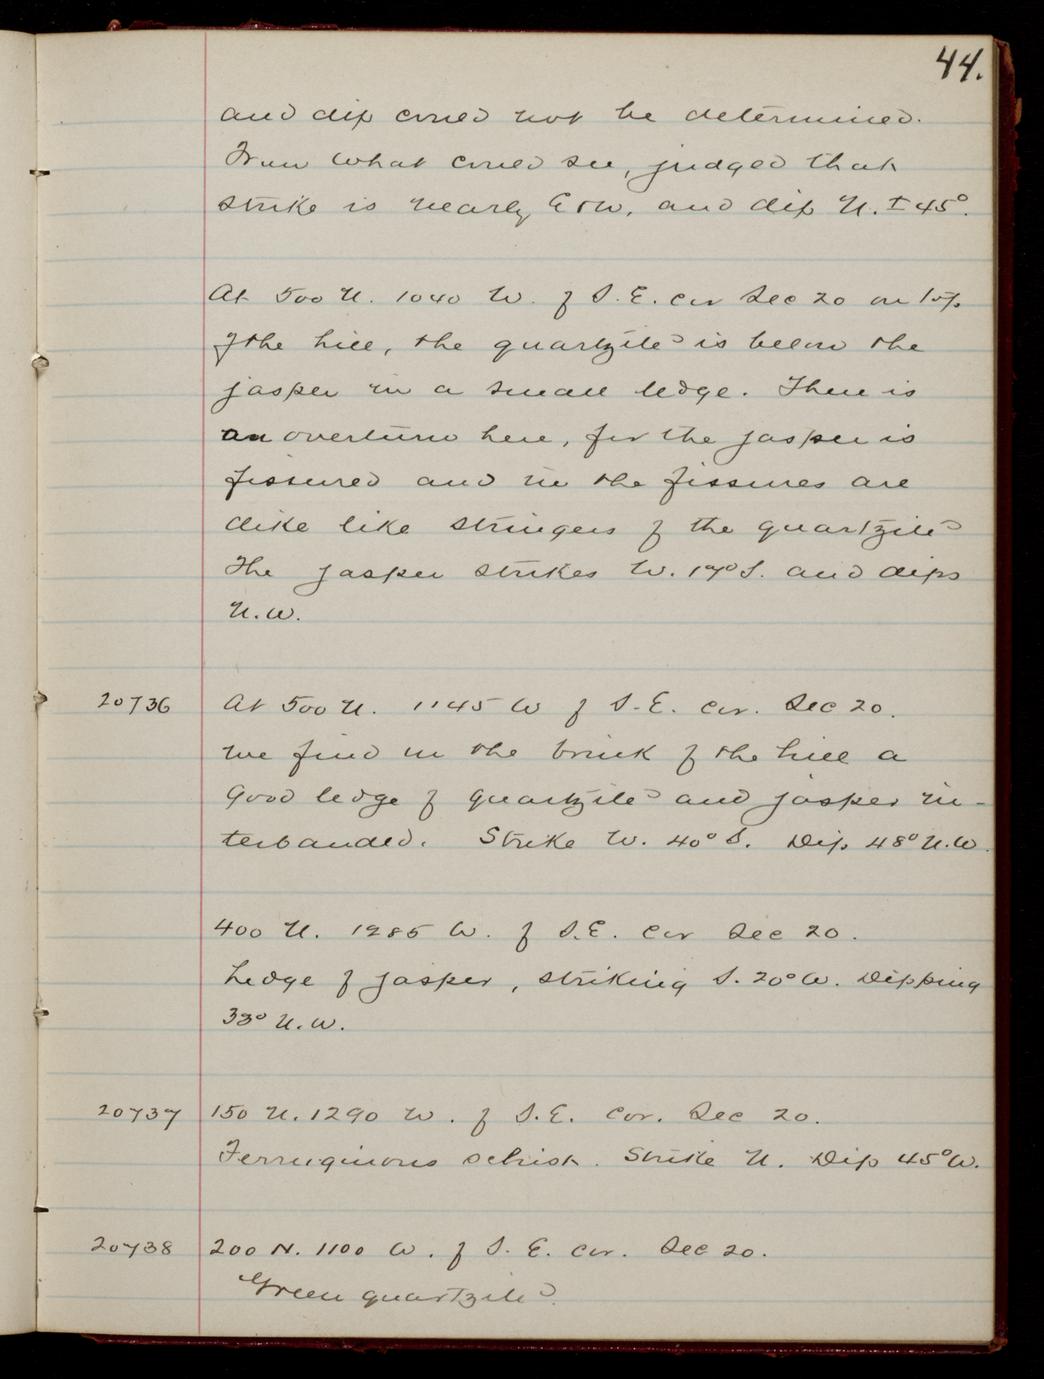 44.
and dip could not be determined.
From what could see, judged that
strike is nearly E & W, and dip N. ± 45°.
At 500 N. 1040 W. of S. E. cor Sec 20 on top
of the hill, the quartzite is below the
jasper in a small ledge. There is
an overturn here, for the jasper is
fissured and in the fissures are
dike like stringers of the quartzite
The jasper strikes W. 17° S. and dips
N. W.
20736 At 500 N. 1145 W of S. E. cor. Sec 20.
we find in the brink of the hill a
Good ledge of quartzite and jasper in-
terbanded. Strike W. 40° S. Dip 48° N. W.
400 N. 1285 W. of S. E. cor Sec 20.
Ledge of jasper, striking S. 20° W. Dipping
33° N. W.
20737 150 N. 1290 W. of S. E. cor. Sec 20.
Ferruginous schist. Strike N. Dip 45° W.
20738 200 N. 1100 W. of S. E. cor. Sec 20.
Green quartzite.